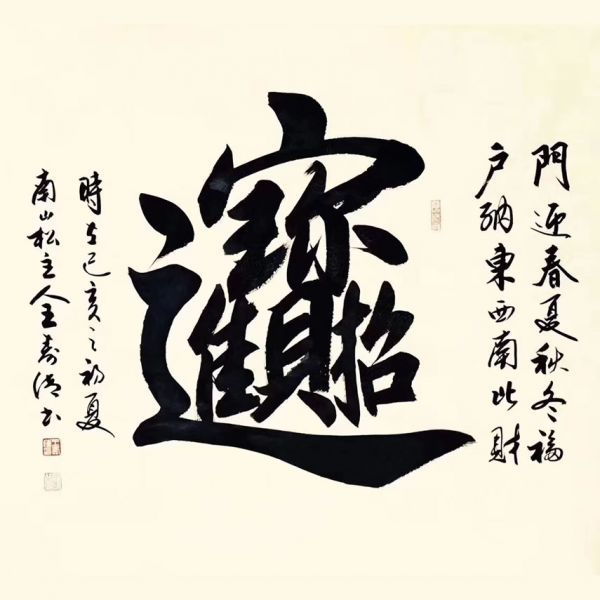 門迎春夏秋冬福
户納東西南北財
招財進寶
時在己亥之初夏
南山松主人王寿清书